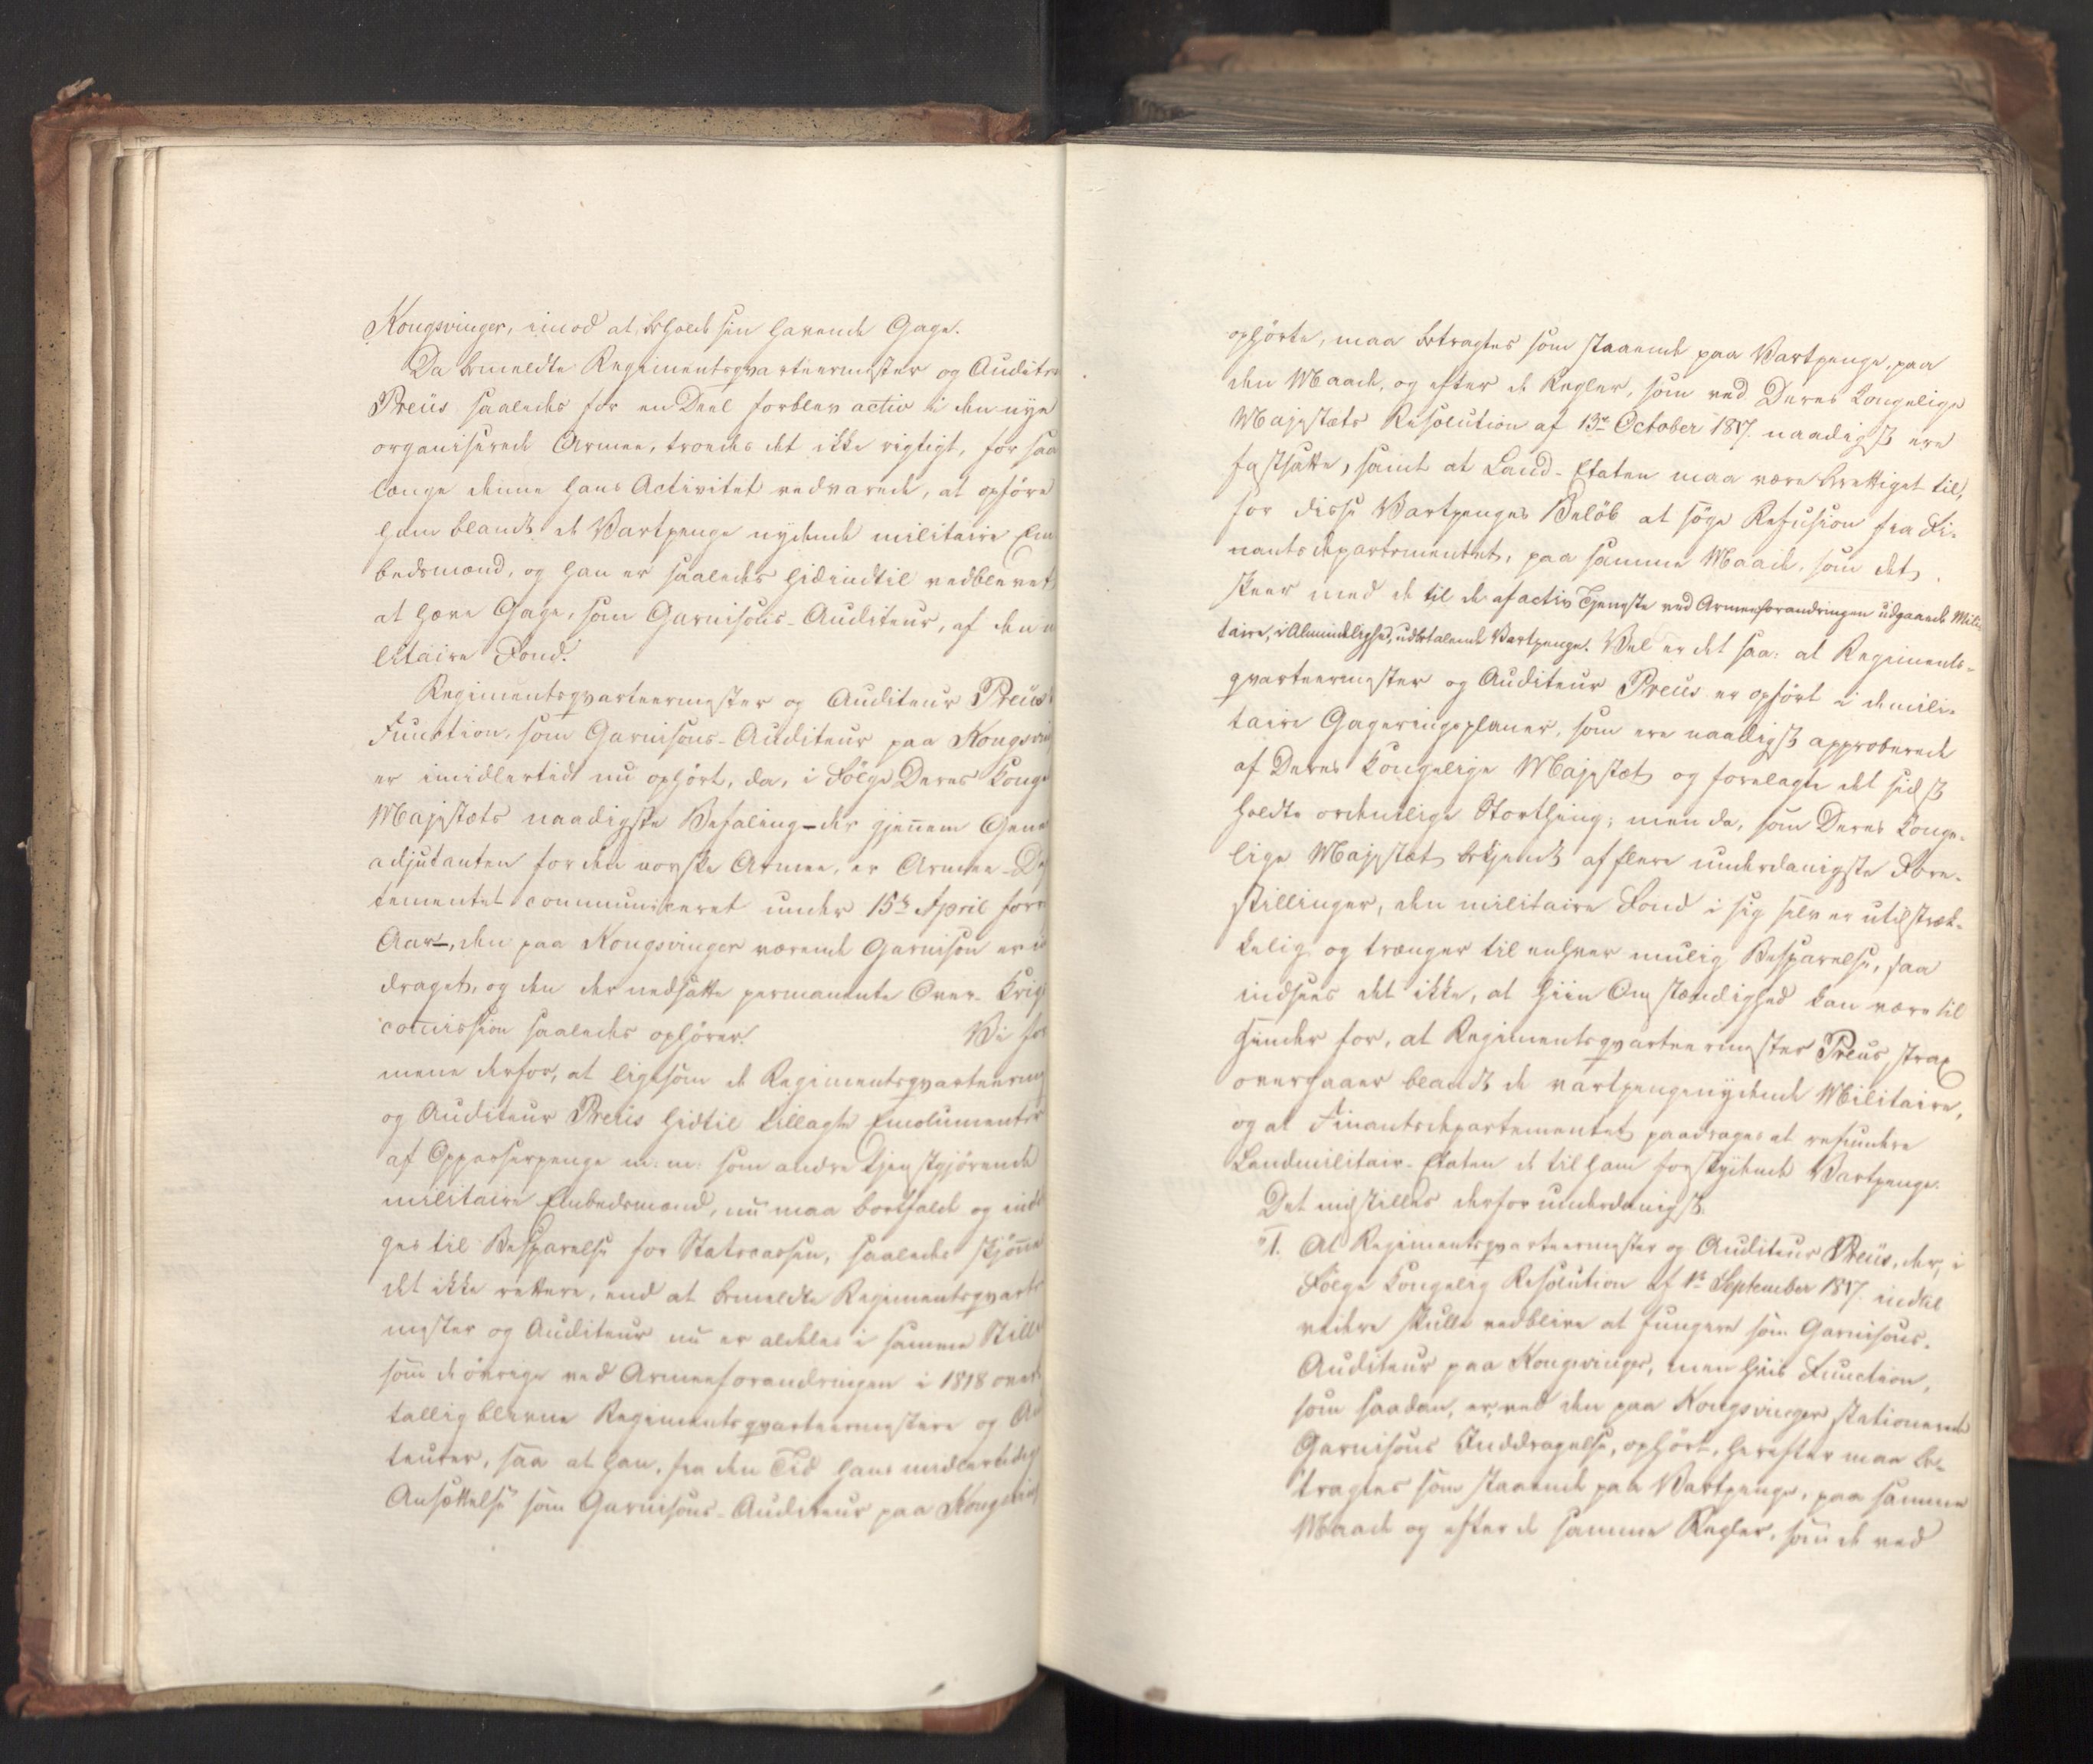 Kongsvinger, imod at beholde sin havende Gage.
Da bemeldte Regimentsqvarteermester og Auditeur
Preüs saaledes for en Deel forblev activ i den nye
organiserede Armee, troedes det ikke rigtigt, for saa
længe denne hans Activitet vedvarede, at opföre
ham blandt de Vartpenge nydende militaire Em
bedsmænd, og han er saaledes hidindtil vedblevet
at hæve Gage, som Garnisons-Auditeur, af den mi
litaire Fond.
Regimentsqvarteermester og Auditeur Preüs's
Function, som Garnisons-Auditeur paa Kongsvin
er imidlertid nu ophört, da, i Fölge Deres Konge
Majestæts naadigste Befaling – der gjennem Gene
adjutanten for den norske Armee, er Armee-De
tementet communiceret under 15de April forr
Aar –, den paa Kongsvinger værende Garnison er in
draget, og den der nedsatte permanente Over-Krigs
comission saaledes ophörer. Vi for
mene derfor, at ligesom de Regimentsqvarteerme
og Auditeur Preüs hidtil tillagte Emolumenter
af Oppasserpenge m: m: som andre tjenstgjörende
militaire Embedsmænd, nu maa bortfalde og indd
ges til Besparelse for Statscassen, saaledes skjönne
det ikke rettere, end at bemeldte Regimentsqvarte
mester og Auditeur nu er aldeles i samme Stilli
som de övrige ved Armeeforandringen i 1818 over
tallig blevne Regimentsqvarteermestere og Au
teurer, saa at han, fra den Tid hans midlertidige
Ansættelse som Garnisons-Auditeur paa Kongsvin
ophörte, maa betragtes som staaende paa Vartpenge, paa
den Maade, og efter de Regler, som ved Deres Kongelige
Majestæts Resolution af 13de October 1817. naadigst ere
fastsatte, samt at Land-Etaten maa være berettiget til,
for disse Vartpenges Belöb at söge Refusion fra Fi-
nantsdepartementet, paa samme Maade, som det
skeer med de til de af activ Tjeneste ved Armeeforandringen udgaaende Mili
taire, i Almindelighed, udbetalende Vartpenge. Vel er det saa: at Regiments-
qvarteermester og Auditeur Preüs er opfört i de mili-
taire Gageringsplaner, som ere naadigst approberede
af Deres Kongelige Majestæt og forelagte det sidst
holdte ordentlige Storthing; men da, som Deres Konge-
lige Majestæt bekjendt af flere underdanigste Fore-
stillinger, den militaire Fond i sig selv er utilstræk-
kelig og trænger til enhver mulig Besparelse, saa
indsees det ikke, at hiin Omstændighed kan være til
Hinder for, at Regimentsqvarteermester Preüs strax
overgaaer blandt de vartpengenydende Militaire,
og at Finantsdepartementet paadrages at refundere
Landmilitair-Etaten de til ham forskydende Vartpenge.
Det indstilles derfor underdanigst:
"1. At Regimentsqvarteermester og Auditeur Preüs, der, i
Fölge Kongelig Resolution af 1ste September 1817. indtil
videre skulle vedblive at fungere som Garnisons-
Auditeur paa Kongsvinger, men hvis Function,
som saadan, er, ved den paa Kongsvinger stationerede
Garnisons Inddragelse, ophört, herefter maa be-
tragtes som staaende paa Vartpenge, paa samme
Maade og efter de samme Regler, som de ved